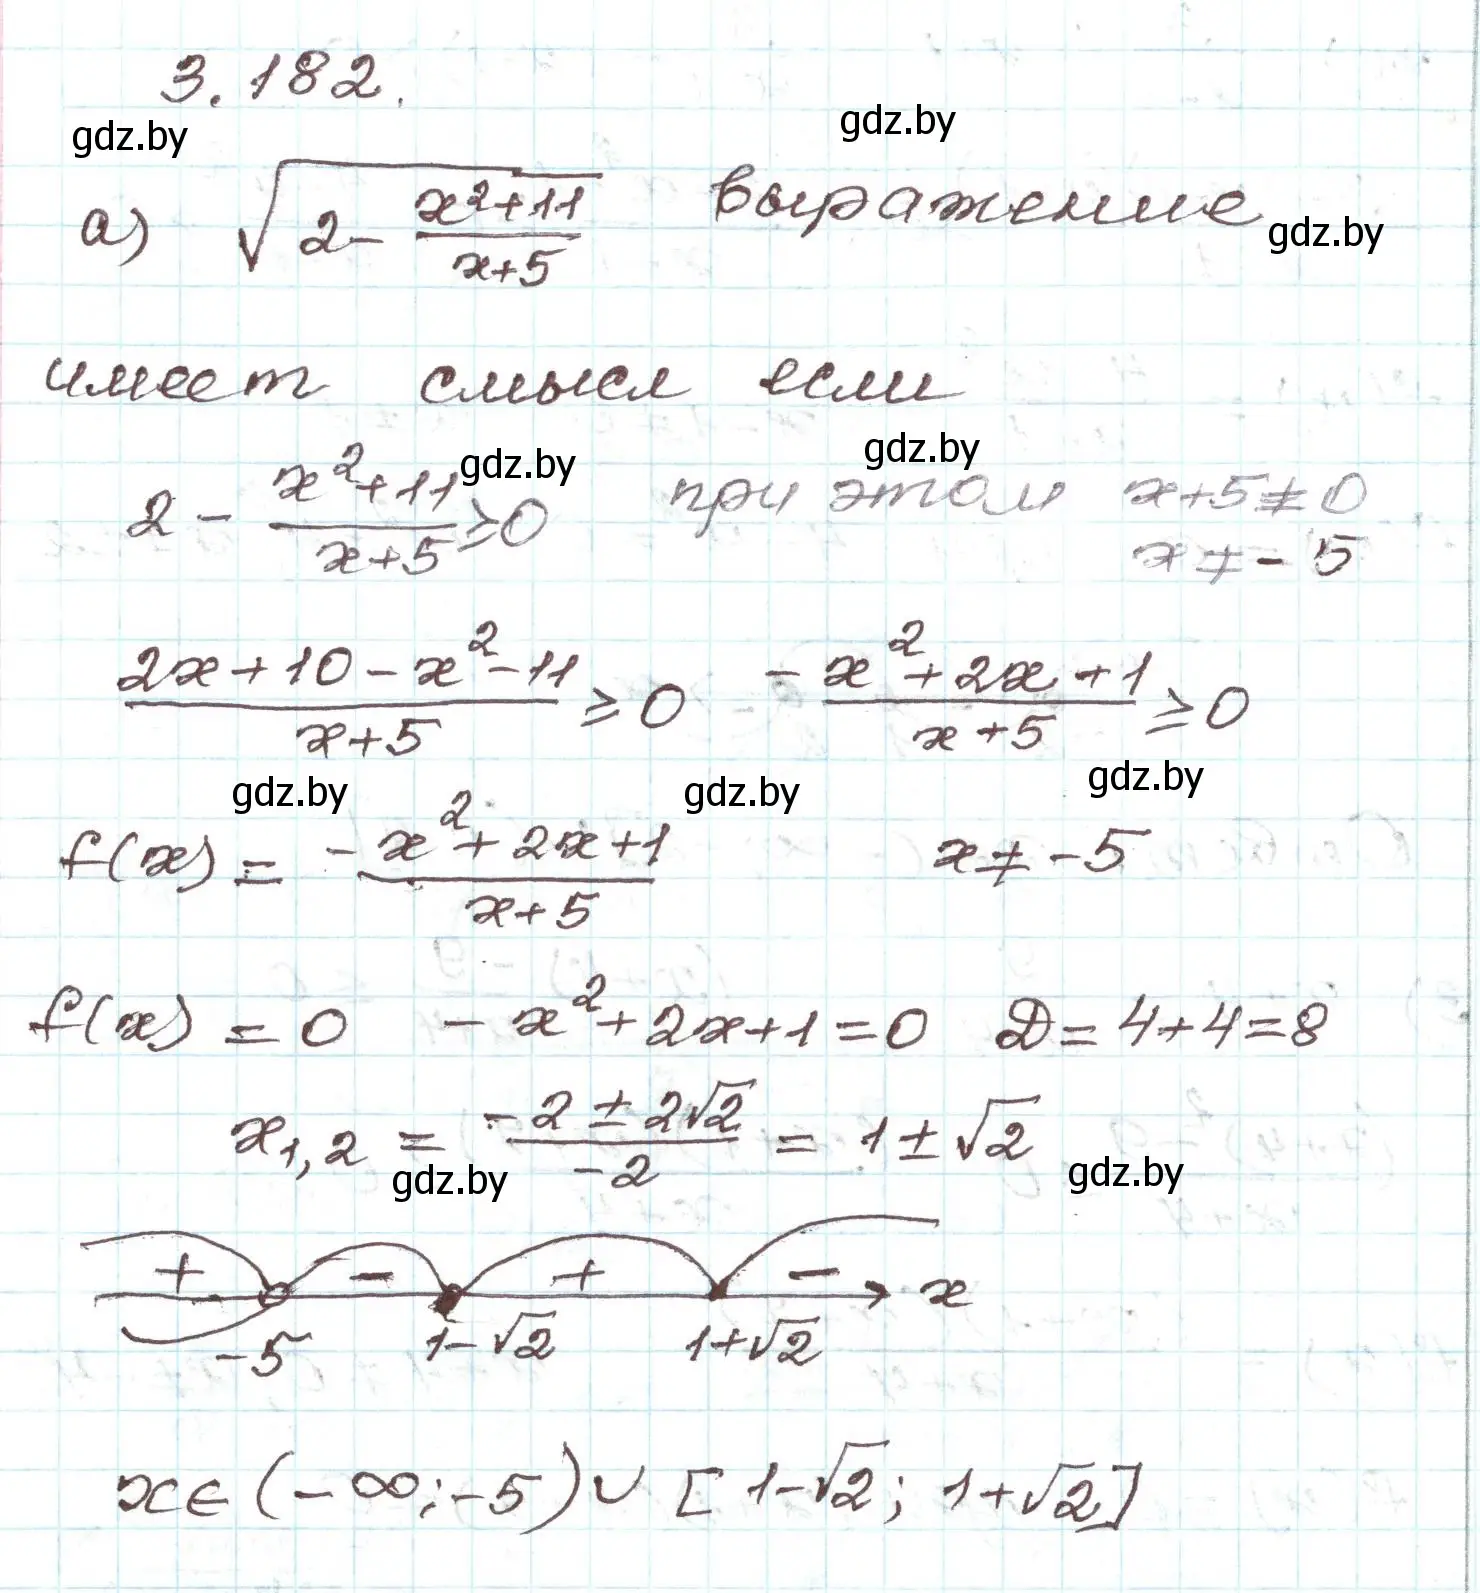 3.182.
gdz.by gdz.by
а) √(2 - (x²+11)/(x+5)) выражение gdz.by
имеет смысл если
2 - (x²+11)/(x+5) ≥ 0 gdz.by при этом x+5≠0 gdz.by
x ≠ -5
(2x+10-x²-11)/(x+5) ≥ 0 (-x²+2x+1)/(x+5) ≥ 0
gdz.by gdz.by gdz.by
f(x) = (-x²+2x+1)/(x+5) x ≠ -5
f(x) = 0 -x²+2x+1=0 D=4+4=8
x₁,₂ = (-2 ± 2√2)/(-2) = 1 ± √2
gdz.by gdz.by
+ - + - x
-5 1-√2 1+√2
x∈(-∞;-5)∪[1-√2; 1+√2]